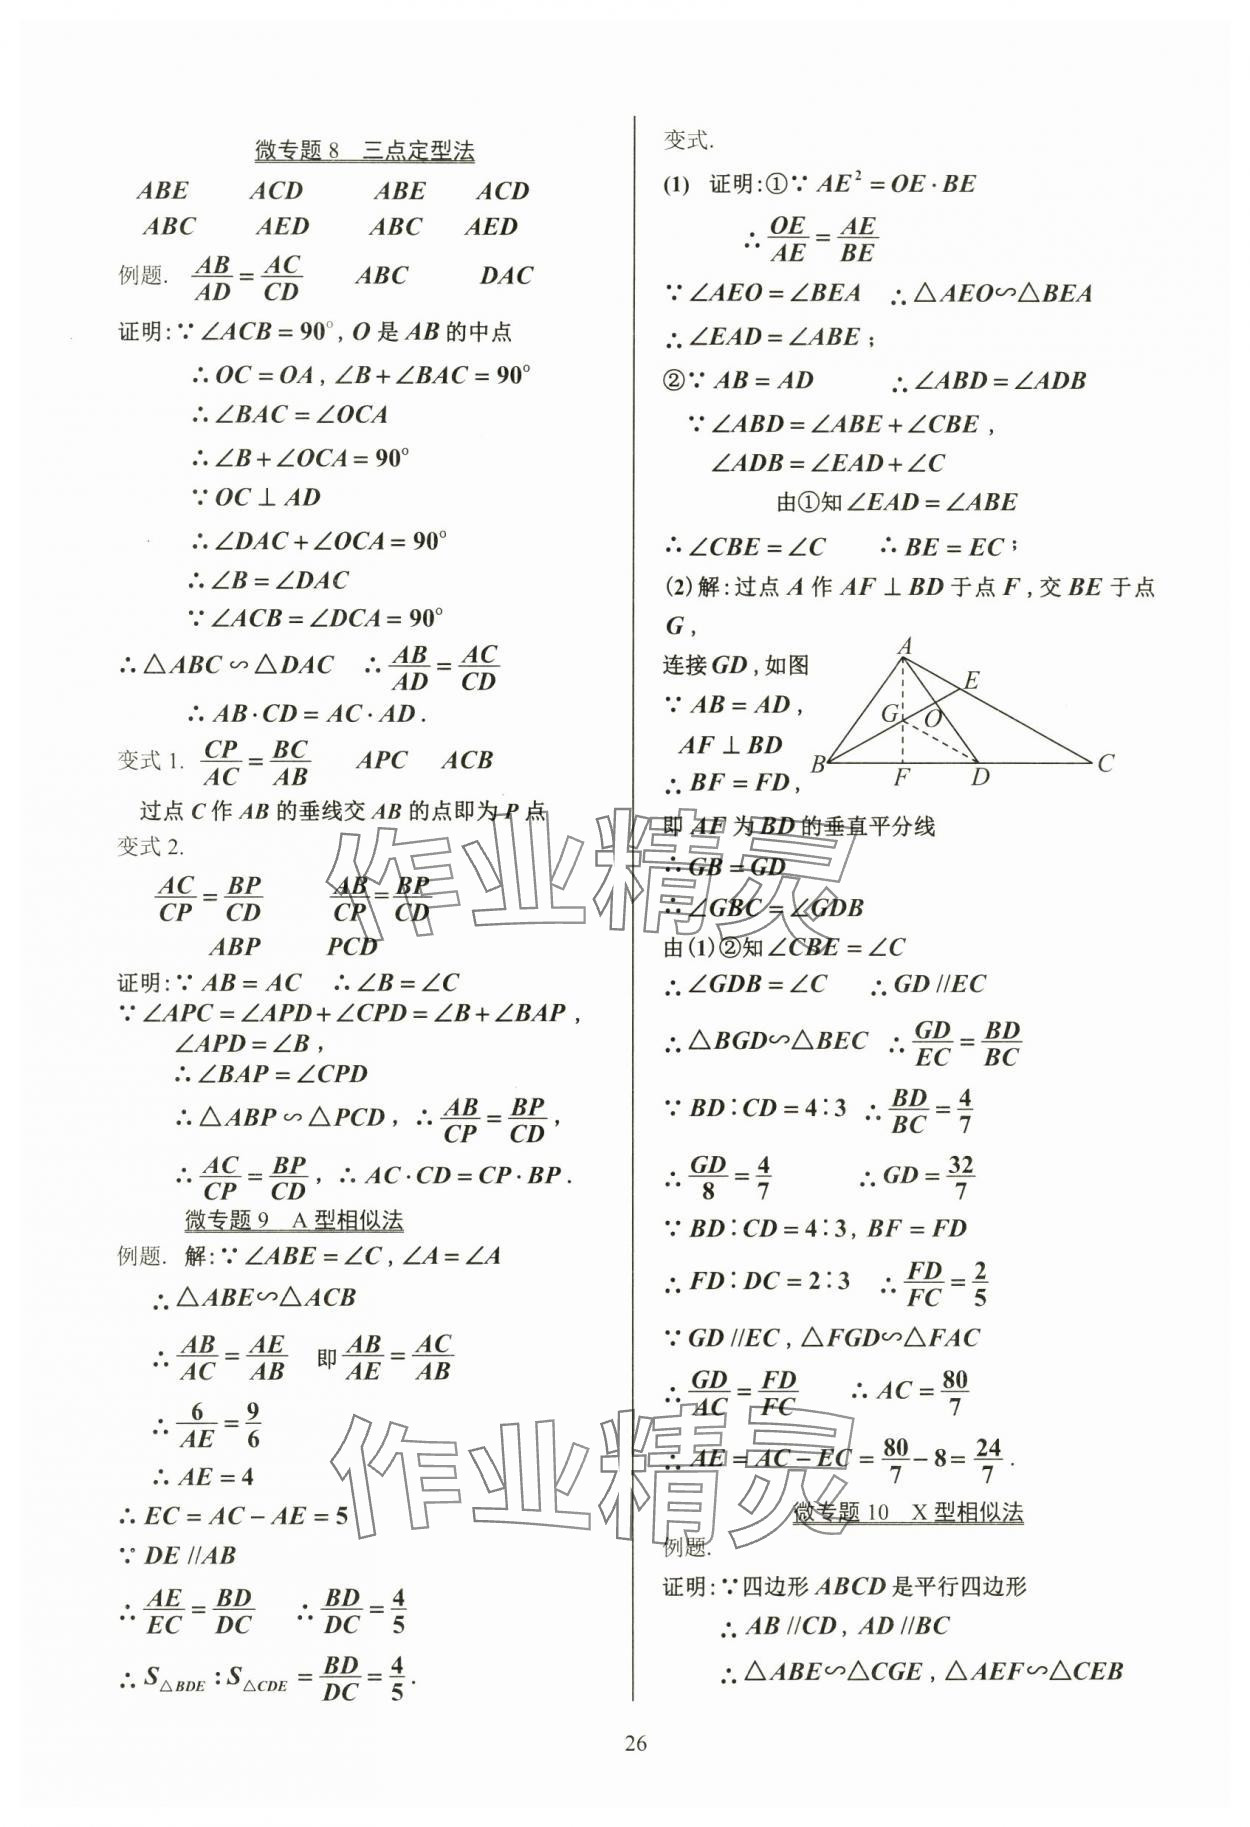 微专题 8　三点定型法
ABE　ACD　ABE　ACD
ABC　AED　ABC　AED
例题. AB/AD = AC/CD　ABC　DAC
证明:∵∠ACB=90°, O 是 AB 的中点
∴OC=OA, ∠B+∠BAC=90°
∴∠BAC=∠OCA
∴∠B+∠OCA=90°
∵OC⊥AD
∴∠DAC+∠OCA=90°
∴∠B=∠DAC
∵∠ACB=∠DCA=90°
∴△ABC∽△DAC　∴AB/AD = AC/CD
∴AB·CD=AC·AD.
变式 1. CP/AC = BC/AB　APC　ACB
过点 C 作 AB 的垂线交 AB 的点即为 P 点
变式 2.
AC/CP = BP/CD　AB/CP = BP/CD
ABP　PCD
证明:∵AB=AC　∴∠B=∠C
∵∠APC=∠APD+∠CPD=∠B+∠BAP,
∠APD=∠B,
∴∠BAP=∠CPD
∴△ABP∽△PCD, ∴AB/CP = BP/CD,
∴AC/CP = BP/CD, ∴AC·CD=CP·BP.
微专题 9　A 型相似法
例题. 解:∵∠ABE=∠C, ∠A=∠A
∴△ABE∽△ACB
∴AB/AC = AE/AB　即 AB/AE = AC/AB
∴6/AE = 9/6
∴AE=4
∴EC=AC-AE=5
∵DE//AB
∴AE/EC = BD/DC　∴BD/DC = 4/5
∴S△BDE:S△CDE = BD/DC = 4/5.
变式.
(1) 证明:①∵AE²=OE·BE
∴OE/AE = AE/BE
∵∠AEO=∠BEA　∴△AEO∽△BEA
∴∠EAD=∠ABE;
②∵AB=AD　∴∠ABD=∠ADB
∵∠ABD=∠ABE+∠CBE,
∠ADB=∠EAD+∠C
由①知∠EAD=∠ABE
∴∠CBE=∠C　∴BE=EC;
(2)解:过点 A 作 AF⊥BD 于点 F, 交 BE 于点
G,
连接 GD, 如图
∵AB=AD,
AF⊥BD
∴BF=FD,
A
E
G
O
B
F
D
C
即 AF 为 BD 的垂直平分线
∴GB=GD
∴∠GBC=∠GDB
由(1)②知∠CBE=∠C
∴∠GDB=∠C　∴GD//EC
∴△BGD∽△BEC　∴GD/EC = BD/BC
∵BD:CD=4:3　∴BD/BC = 4/7
∴GD/8 = 4/7　∴GD = 32/7
∵BD:CD=4:3, BF=FD
∴FD:DC=2:3　∴FD/FC = 2/5
∵GD//EC, △FGD∽△FAC
∴GD/AC = FD/FC　∴AC = 80/7
∴AE=AC-EC = 80/7 - 8 = 24/7.
微专题 10　X 型相似法
例题.
证明:∵四边形 ABCD 是平行四边形
∴AB//CD, AD//BC
∴△ABE∽△CGE, △AEF∽△CEB
26
作业精灵
作业精灵